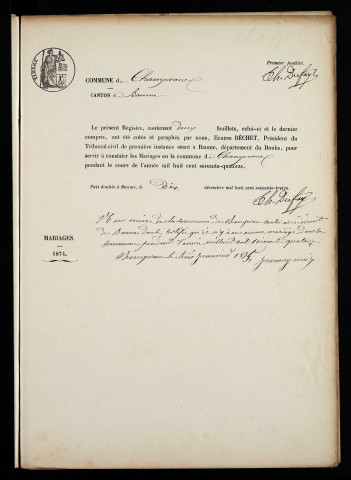 TIMBRE
Premier feuillet.
Th. Dufay
COMMUNE d e Champvans
CANTON d e Baume
Le présent Registre, contenant deux feuillets, celui-ci et le dernier
compris, ont été cotés et paraphés par nous, BÉCHET, Président du
Tribunal civil de première instance séant à Baume, département du Doubs, pour
servir à constater les Mariages en la commune d e Champvans
pendant le cours de l'année mil huit cent soixante-quatorze.
Fait double à Baume, le Dix décembre mil huit cent soixante-treize.
Th. Dufay
MARIAGES.
1874.
Nous maire de la commune de Champvans canton
de Baume doubs, certifie qu'il n'y a eu aucun mariage dans la
commune pendant l'année mil huit cent soixante quatorze
Champvans le trois janvier 1875